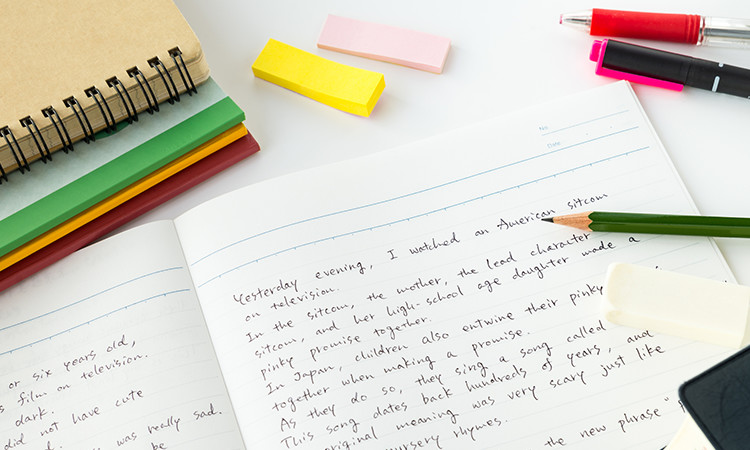 or six years old,
film on television.
dark.
did not have cute
was really sad.
be
No.
Date
Yesterday evening, I watched an American sitcom
on television.
In the sitcom, the mother, the lead character
sitcom, and her high-school age daughter made a
pinky promise together.
In Japan, children also entwine their pinky
together when making a promise.
As they do so, they sing a song called
This song dates back hundreds of years, and
original meaning was very scary just like
nursery rhymes.
the new phrase "